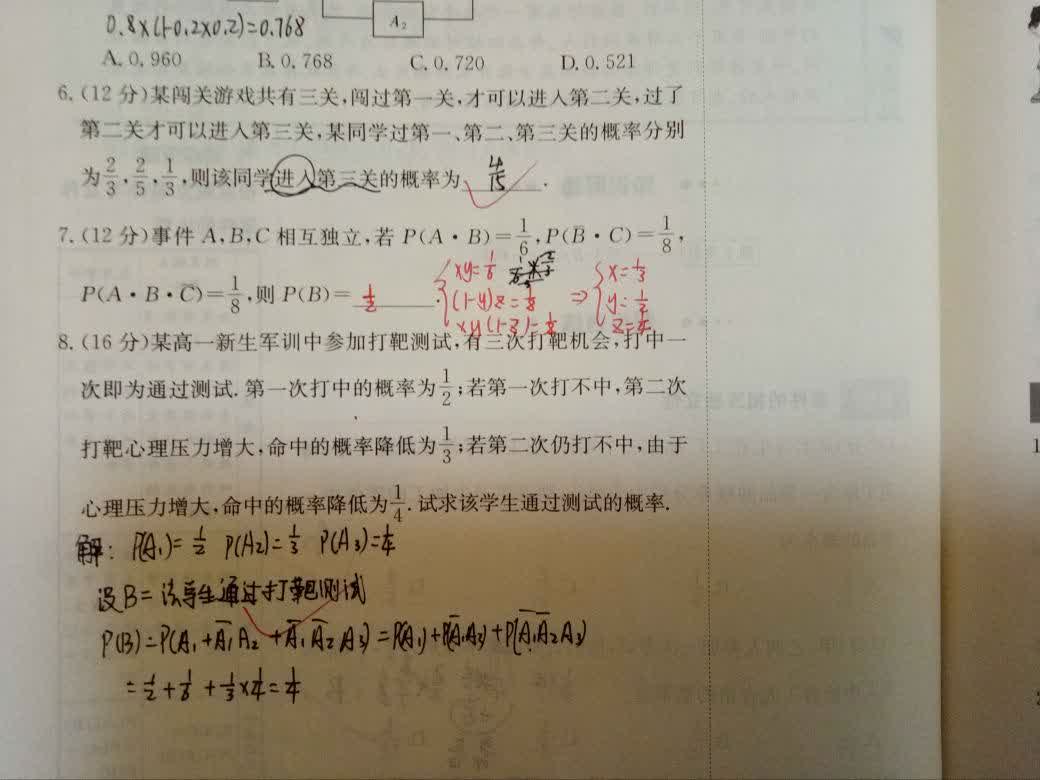 0.8×(1-0.2×0.2)=0.768
A₂
A. 0.960 B. 0.768 C. 0.720 D. 0.521
6. (12 分)某闯关游戏共有三关,闯过第一关,才可以进入第二关,过了
第二关才可以进入第三关,某同学过第一、第二、第三关的概率分别
为 2/3, 2/5, 1/3, 则该同学进入第三关的概率为 4/15 .
7. (12 分)事件 A,B,C 相互独立,若 P(A·B)=1/6, P(B̄·C)=1/8,
P(A·B·C̄)=1/8, 则 P(B)= 1/2 .
xy=1/6
(1-y)z=1/8
xy(1-z)=1/8
⇒
x=1/3
y=1/2
z=1/4
8. (16 分)某高一新生军训中参加打靶测试,有三次打靶机会,打中一
次即为通过测试. 第一次打中的概率为 1/2;若第一次打不中,第二次
打靶心理压力增大,命中的概率降低为 1/3;若第二次仍打不中,由于
心理压力增大,命中的概率降低为 1/4. 试求该学生通过测试的概率.
解: P(A₁)=1/2 P(A₂)=1/3 P(A₃)=1/4
设B=该学生通过打靶测试
P(B)=P(A₁+Ā₁A₂+Ā₁Ā₂A₃)=P(A₁)+P(Ā₁A₂)+P(Ā₁Ā₂A₃)
=1/2+1/6+1/3×1/4=1/4